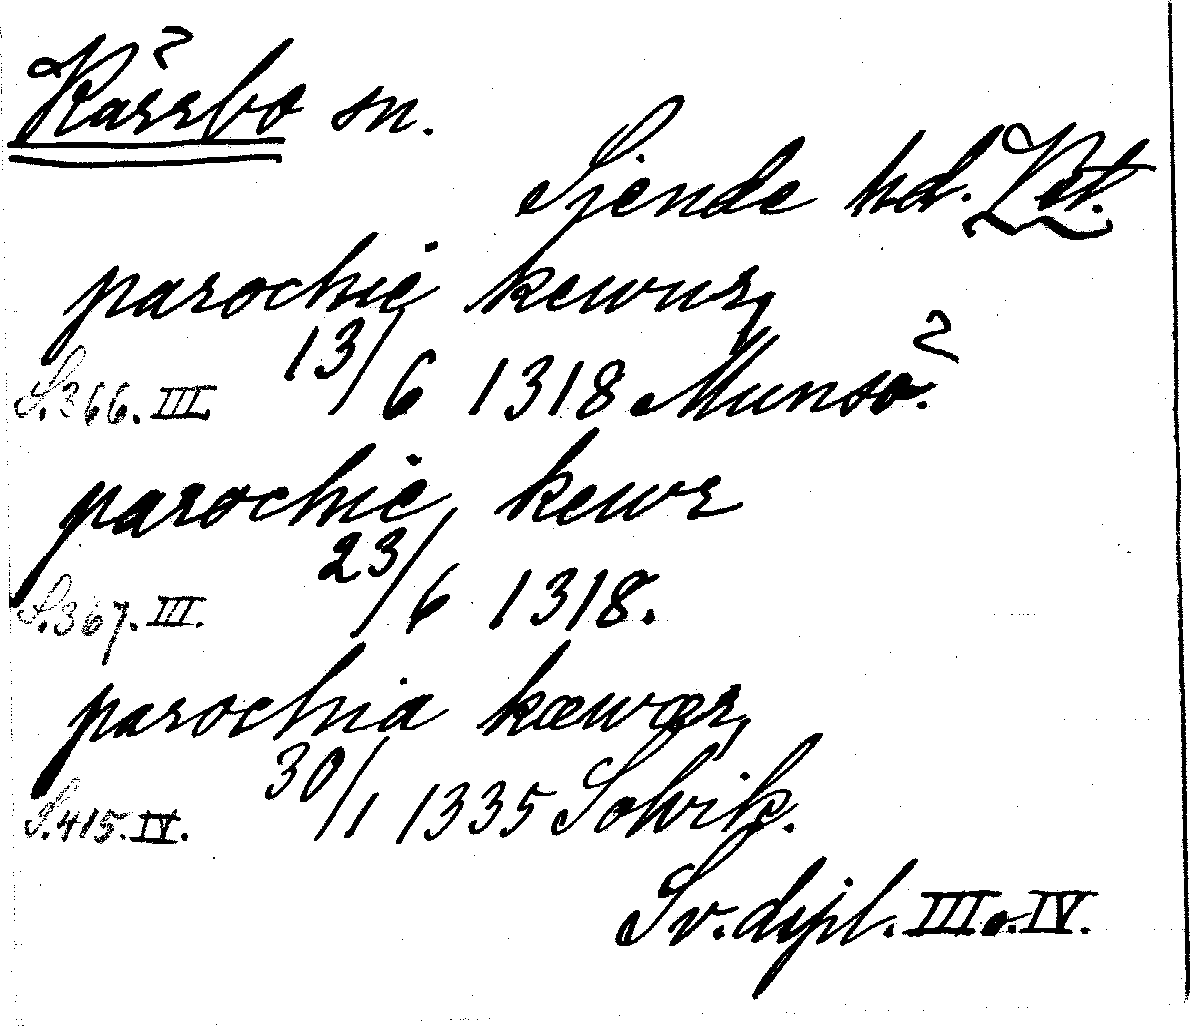 Kärrbo sn.
Sjende hd. Vst.
parochie kewur,
S.366. III. 13/6 1318 Munsö.
parochie kewr
S.367. III. 23/6 1318.
parochia kæwær,
S.415. IV. 30/1 1335 Solvik.
Sv. dipl. III o. IV.